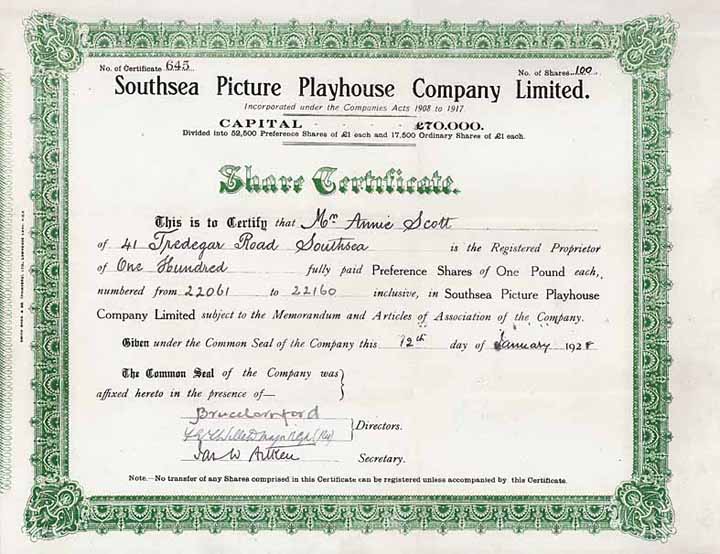 No. of Certificate 645
No. of Shares 100
Southsea Picture Playhouse Company Limited.
Incorporated under the Companies Acts 1908 to 1917
CAPITAL - - £70,000.
Divided into 52,500 Preference Shares of £1 each and 17,500 Ordinary Shares of £1 each.
Share Certificate.
This is to Certify that Mrs Annie Scott
of 41 Tredegar Road Southsea is the Registered Proprietor
of One Hundred fully paid Preference Shares of One Pound each,
numbered from 22061 to 22160 inclusive, in Southsea Picture Playhouse
Company Limited subject to the Memorandum and Articles of Association of the Company.
Given under the Common Seal of the Company this 12th day of January 1928
The Common Seal of the Company was
affixed hereto in the presence of—
Bruce Cornford
Directors.
Jas W Aitken Secretary.
Note.—No transfer of any Shares comprised in this Certificate can be registered unless accompanied by this Certificate.